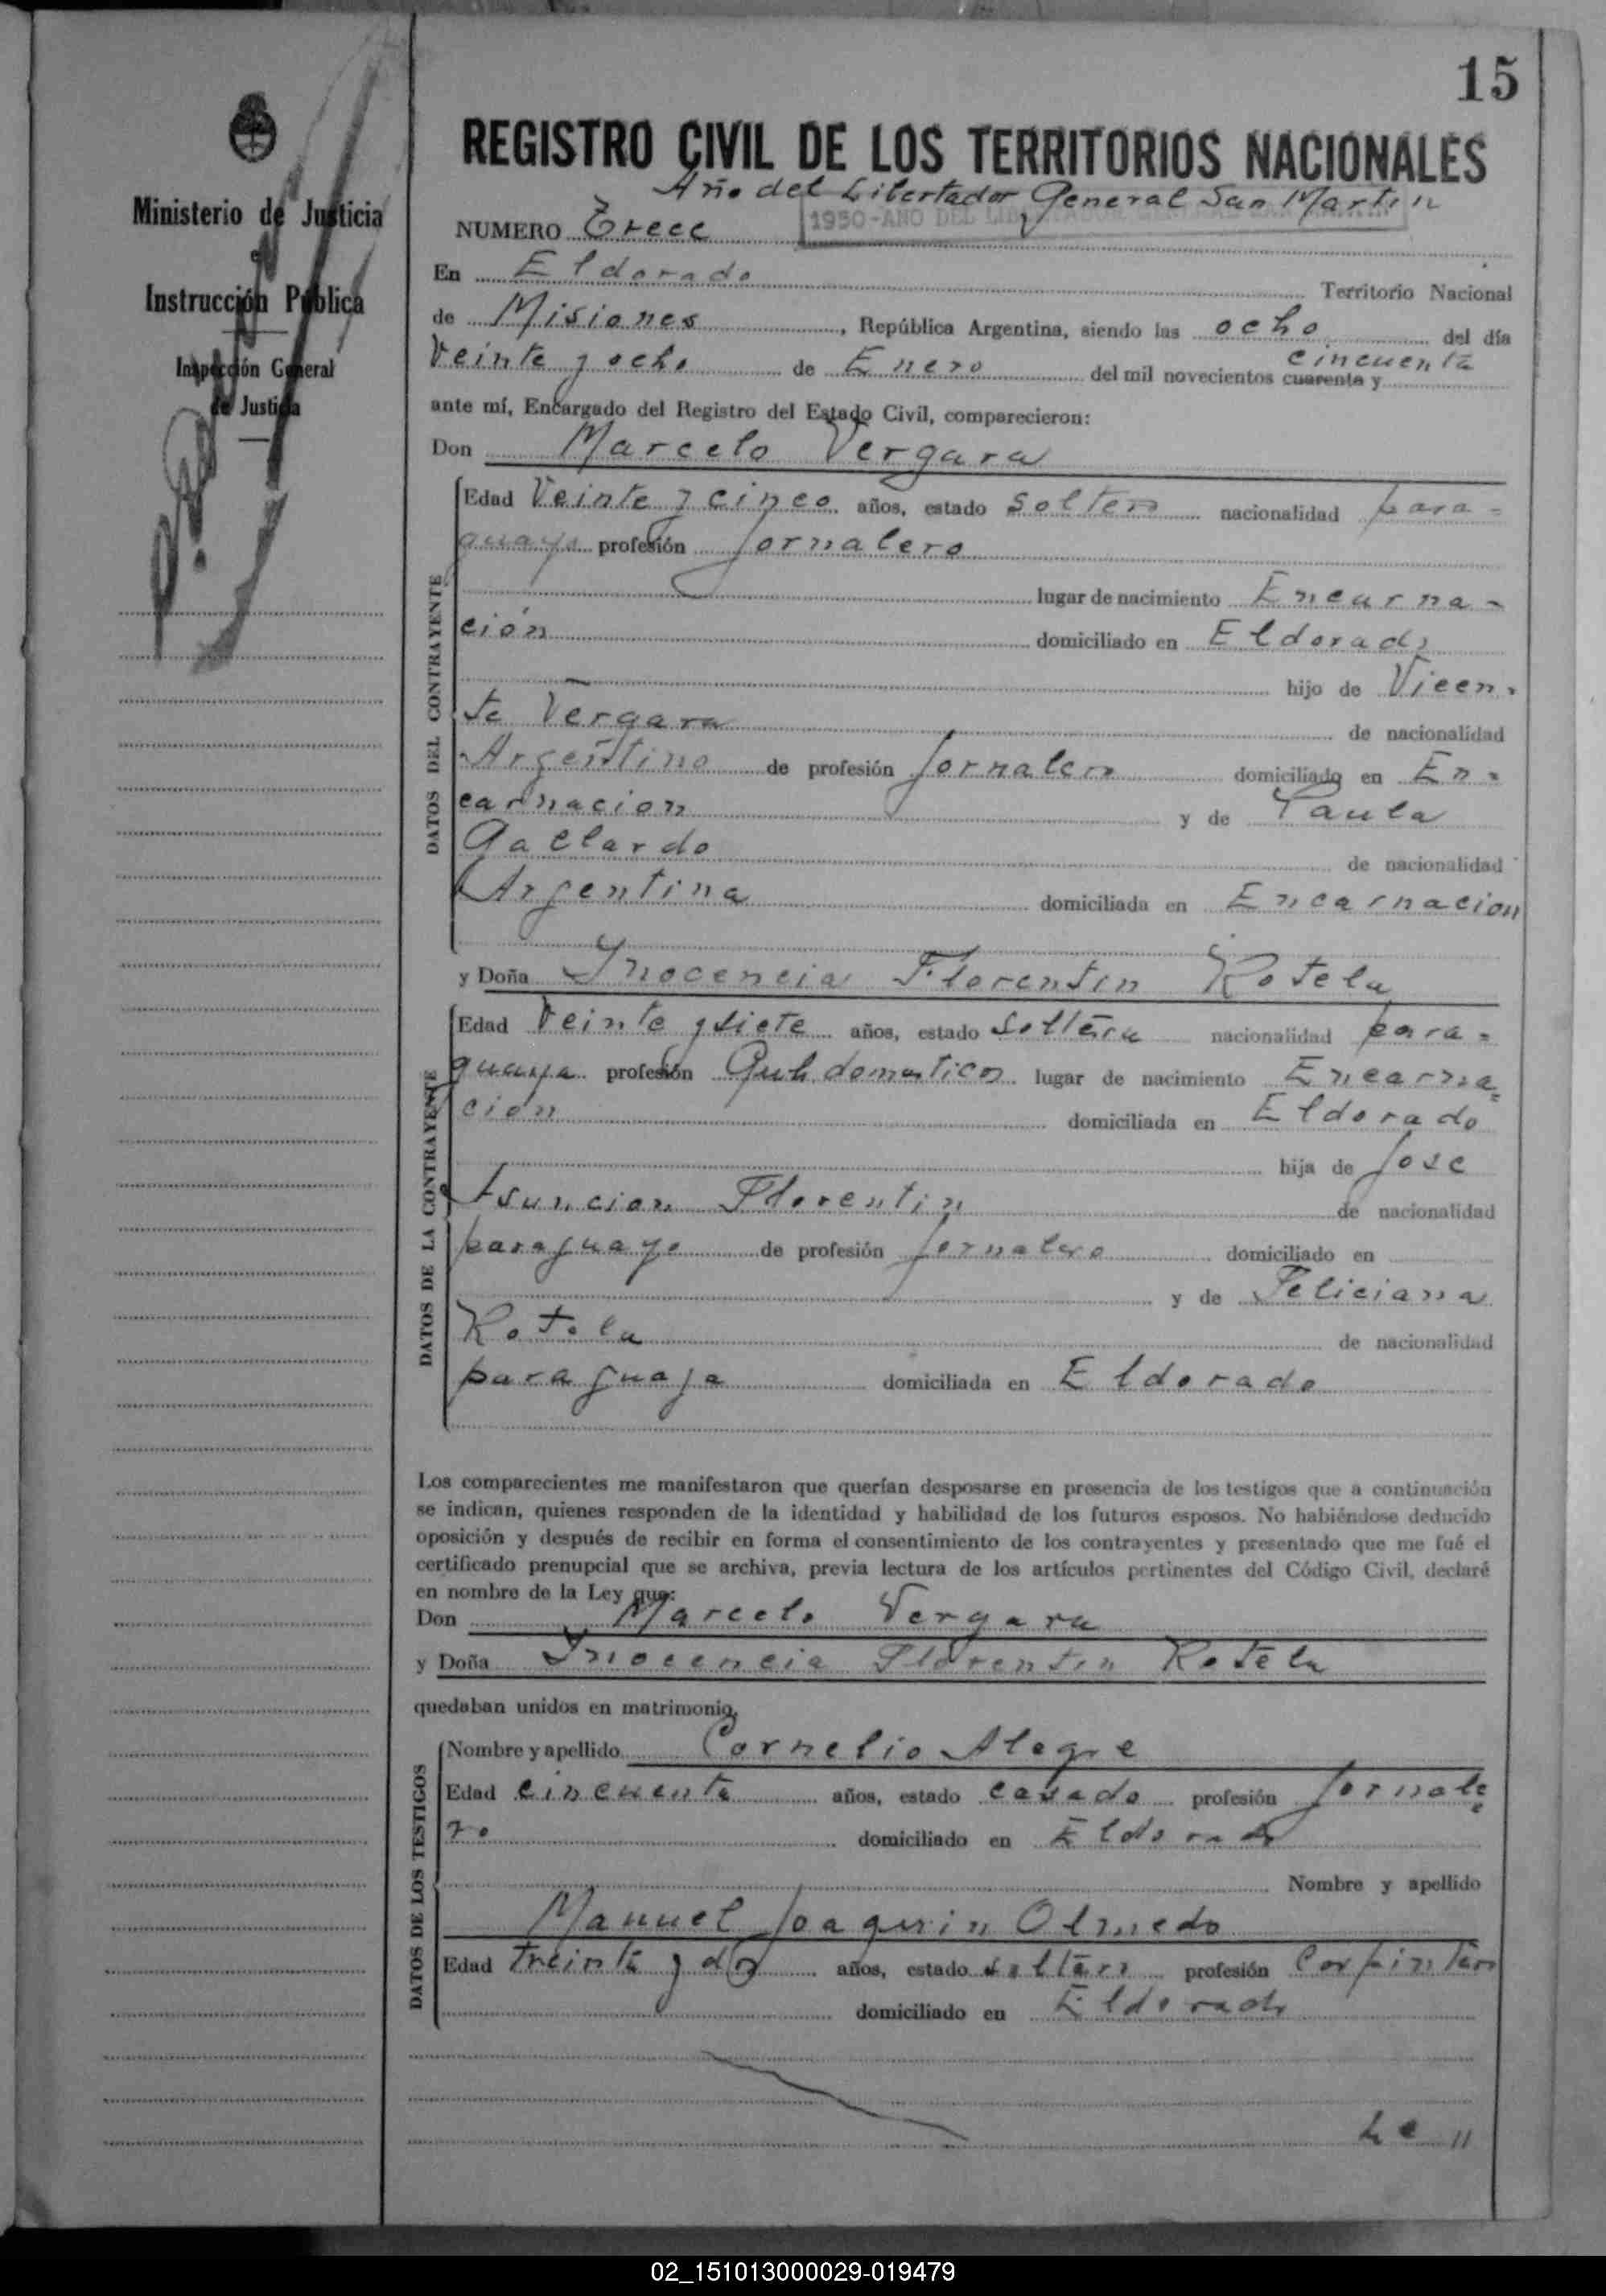 15
REGISTRO CIVIL DE LOS TERRITORIOS NACIONALES
Año del Libertador General San Martin
1950-AÑO DEL LIBERTADOR GENERAL SAN MARTIN
NUMERO Trece
En Eldorado Territorio Nacional
de Misiones, República Argentina, siendo las ocho del día
Veinte y ocho de Enero del mil novecientos cuarenta y cincuenta
ante mí, Encargado del Registro del Estado Civil, comparecieron:
Don Marcelo Vergara
DATOS DEL CONTRAYENTE
Edad Veinte y cinco años, estado soltero nacionalidad para-
guayo profesión Jornalero
lugar de nacimiento Encarna-
ción domiciliado en Eldorado
hijo de Vicen-
te Vergara de nacionalidad
Argentino de profesión Jornalero domiciliado en En-
carnacion y de Paula
Gallardo de nacionalidad
Argentina domiciliada en Encarnacion
y Doña Inocencia Florentin Rotela
DATOS DE LA CONTRAYENTE
Edad Veinte y siete años, estado soltera nacionalidad para-
guaya profesión Queh. domesticos lugar de nacimiento Encarna-
cion domiciliada en Eldorado
hija de Jose
Asuncion Florentin de nacionalidad
paraguayo de profesión Jornalero domiciliado en
y de Feliciana
Rotela de nacionalidad
paraguaya domiciliada en Eldorado
Los comparecientes me manifestaron que querían desposarse en presencia de los testigos que a continuación
se indican, quienes responden de la identidad y habilidad de los futuros esposos. No habiéndose deducido
oposición y después de recibir en forma el consentimiento de los contrayentes y presentado que me fué el
certificado prenupcial que se archiva, previa lectura de los artículos pertinentes del Código Civil, declaré
en nombre de la Ley que:
Don Marcelo Vergara
y Doña Inocencia Florentin Rotela
quedaban unidos en matrimonio,
DATOS DE LOS TESTIGOS
Nombre y apellido Cornelio Alegre
Edad cincuenta años, estado casado profesión Jornale-
ro domiciliado en Eldorado
Nombre y apellido
Manuel Joaquin Olmedo
Edad treinta y dos años, estado soltero profesión Carpintero
domiciliado en Eldorado
Le //
Ministerio de Justicia
e
Instrucción Pública
Inspección General
de Justicia
02_151013000029-019479